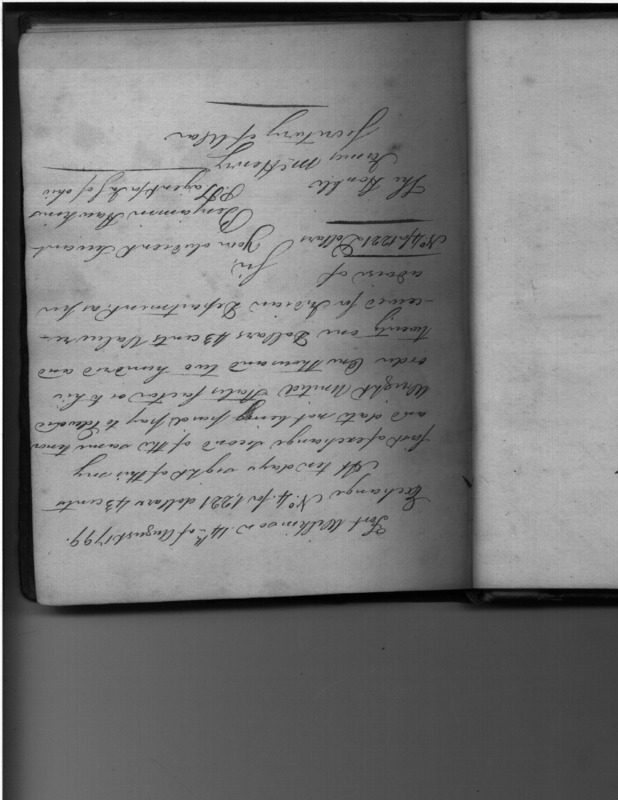 Fort Wilkinson 14th of August 1799.
Exchange No. 4. for 1,221 dollars 43 cents
At ten days sight of this my
first of exchange second of the same tenor
and date not being paid pay to Edward
Wright United States factor or to his
order One thousand two hundred and
twenty one Dollars 43 cents Value re-
-ceived for Indian Department as per
advice of
Sir,
No 4 for 1221 Dollars Your obedient Servant
Benjamin Hawkins
The Honble P. T. agent for I. A. S. of Ohio
James McHenry
Secretary of War